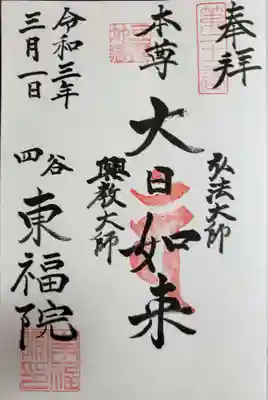 奉拝
本尊
弘法大師
大日如来
興教大師
令和三年
三月一日
四谷
東福院